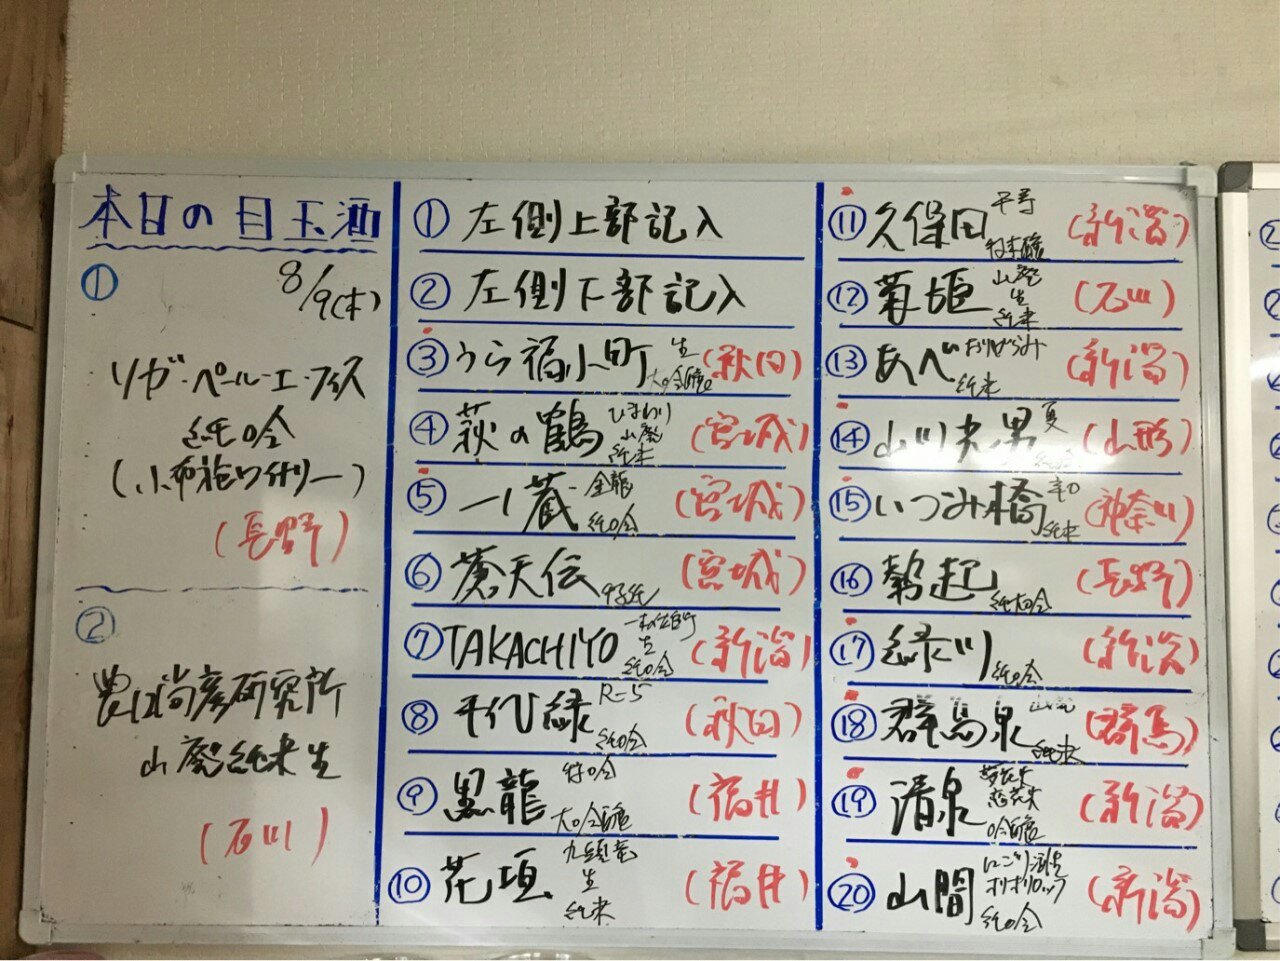 本日の目玉酒
①
8/9(木)
ソガ・ペール・エ・フィス
純吟
(小布施ワイナリー)
(長野)
②
農口尚彦研究所
山廃純米生
(石川)
① 左側上部記入
② 左側下部記入
③ うら福小町 生 大吟醸 (秋田)
④ 萩の鶴 ひまわり 山廃 純米 (宮城)
⑤ 一ノ蔵 金龍 純吟 (宮城)
⑥ 蒼天伝 特純 (宮城)
⑦ TAKACHIYO 生 純吟 (新潟)
⑧ 千代緑 R-5 純吟 (秋田)
⑨ 黒龍 特吟 大吟醸 (福井)
⑩ 花垣 九頭竜 生 純米 (福井)
⑪ 久保田 千寿 特本醸 (新潟)
⑫ 菊姫 山廃 生 純米 (石川)
⑬ あべ おりがらみ 純米 (新潟)
⑭ 山川光男 夏 (山形)
⑮ いづみ橋 辛口 純米 (神奈川)
⑯ 勢起 純大吟 (長野)
⑰ 緑川 純吟 (新潟)
⑱ 群馬泉 山廃 純米 (群馬)
⑲ 清泉 吟醸 (新潟)
⑳ 山間 にごり活性 オリオリロック 純吟 (新潟)